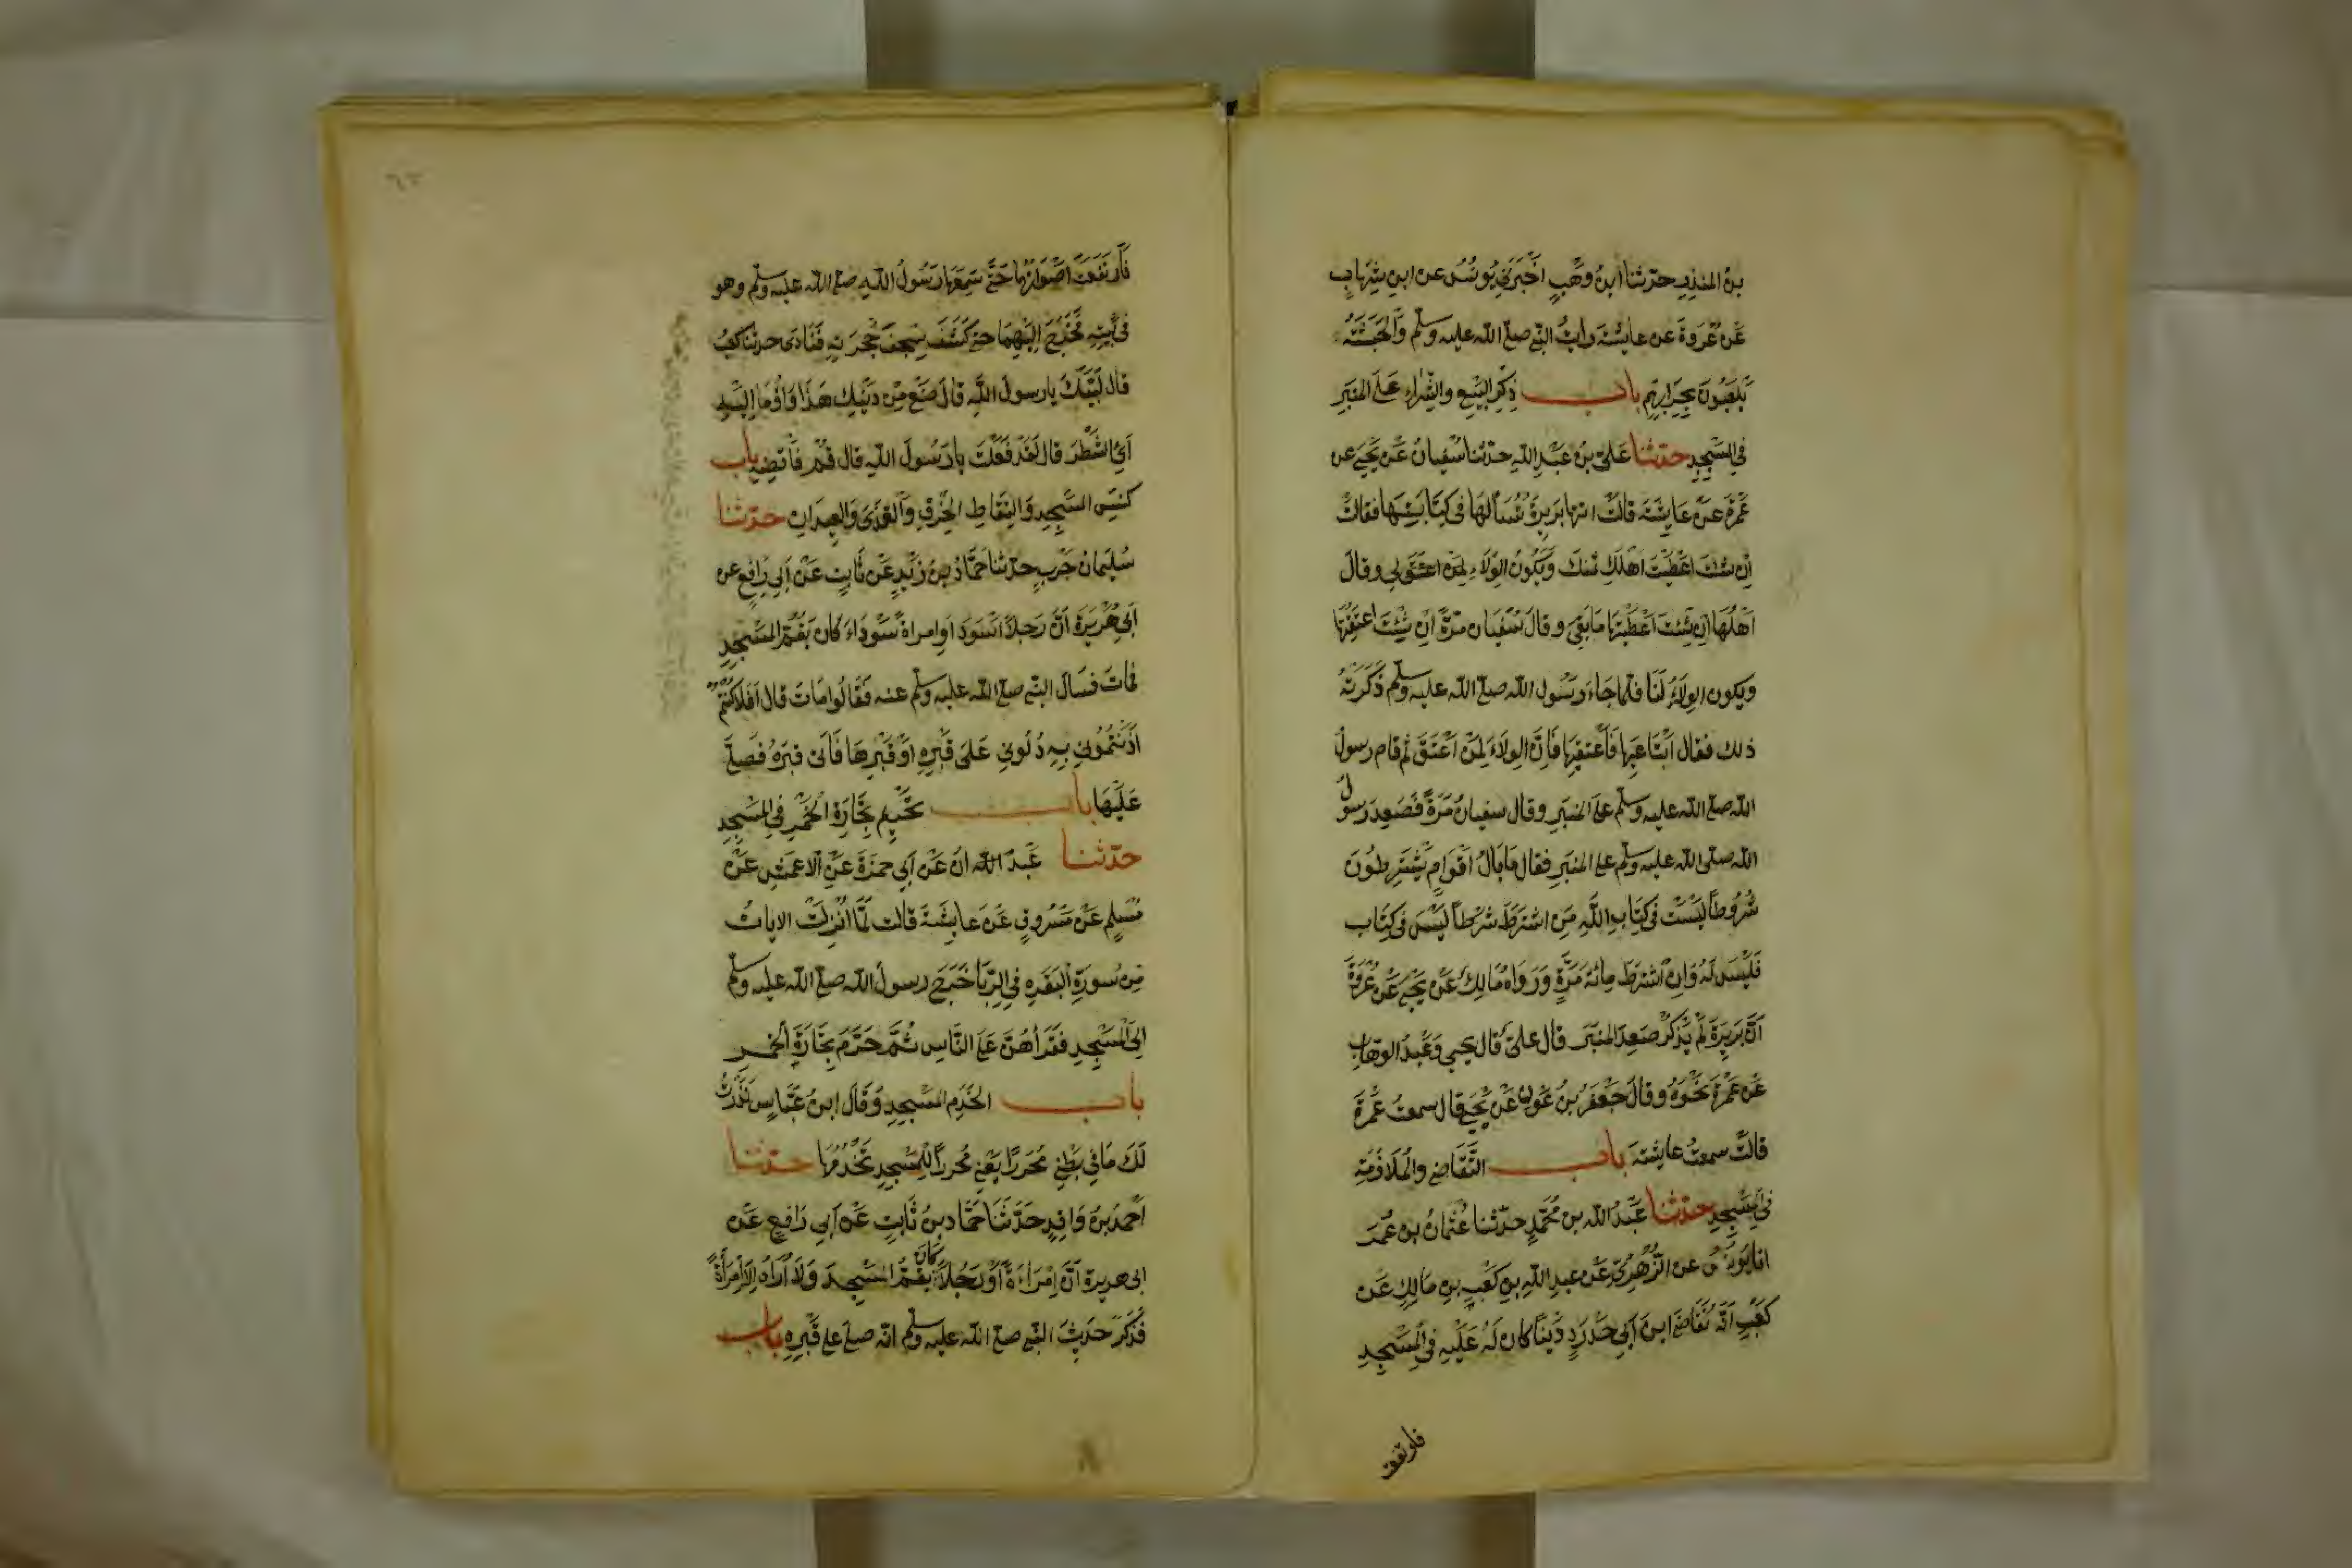 بنُ المنذِرِ حدّثنا ابنُ وهْبٍ اَخْبَرَنِي يُونُسُ عن ابنِ شِهابٍ
عَن عُرْوَةَ عن عايشة رايتُ النّبي صلى الله عليه وسلّم وَالحَبَشَةُ
يَلعَبُونَ بحِرَابِهِم باب ذِكْرِ البَيْعِ والشِّرَاءِ عَلَى المِنْبَرِ
في المَسْجِدِ حدّثنا عَلىّ بنُ عَبْدِ اللهِ حدّثنا سُفيانُ عَنْ يَحْيَى عن
عَمْرَةَ عَنْ عَايِشَةَ قالَتْ اتتها بَرِيرَةُ تَسْأَلُهَا في كِتَابَتِهَا فقالَتْ
اِنْ شِئتِ اعْطَيْتُ اَهْلَكِ ثمنك وَيَكُونُ الوَلَاءُ لي وقالَ
اَهْلُهَا اِن شِئْتِ اَعْطَيْتِهَا مَا بَقِيَ وقالَ سُفْيَان مَرّةً اِنْ شِئْتِ اَعْتَقْتِهَا
ويكون الوَلَاءُ لَنَا فلما جَاءَ رَسُول الله صلى الله عليه وسلّم ذَكَّرَتْهُ
ذلك فقال اَبْتَاعِيهَا فَأَعْتِقِيهَا فَاِنَّ الوَلَاءَ لِمَنْ اَعْتَقَ ثُمّ قام رسولُ
الله صلى الله عليه وسلّم على المنبَرِ وقال سفيانُ مَرّةً فَصَعِدَ رَسولُ
الله صلّى الله عليه وسلّم على المنبَرِ فقال مَا بَالُ اَقْوَامٍ يَشْتَرِطُونَ
شُرُوطاً لَيْسَتْ في كِتَابِ اللهِ مَنِ اشْتَرَطَ شَرْطاً لَيْسَ في كِتَاب
فَلَيْسَ لَهُ وَاِنِ اشْتَرَطَ مِائَةَ مَرَّةٍ وَرَوَاهُ مَالِكٌ عَنْ يَحْيَى عَنْ عَمْرَةَ
اَنَّ بَرِيرَةَ لَمْ يَذكُرْ صَعِدَ المنْبَرَ قال عَلىّ قال يَحْيَى وَعَبْدُ الوهّابِ
عَن عَمْرَةَ نَحْوَهُ وقالَ جَعْفَرُ بنُ عَوْنٍ عَنْ يَحْيَى قال سمعتُ عَمْرَةَ
قالَتْ سمعتُ عايشة باب التَّقَاضِي والمُلَازَمَةِ
في المَسْجِدِ حدّثنا عَبْدُ الله بن مُحَمّدٍ حدّثنا عُثمانُ بن عُمَرَ
انا يُونُسُ عن الزُّهْرِيّ عَن عبدِ اللهِ بنِ كَعْبِ بنِ مَالِكٍ عَن
كَعْبٍ اَنّهُ تَقَاضَى ابنَ اَبِي حَدْرَدٍ دَيْناً كان لَهُ عَلَيْهِ في المَسْجِدِ
فارتفعت
فَأرتَفَعَتْ اَصْوَاتُهَا حَتَّى سَمِعَهَا رَسُولُ اللهِ صلى الله عليه وسلّم وهو
في بَيْتِهِ فَخَرَجَ اِلَيْهِمَا حتى كَشَفَ سِجْفَ حُجْرَتِهِ فَنَادَى كَعْبُ
قال لَبّيْكَ يا رسولَ الله قالَ ضَعْ مِنْ دَيْنِكَ هَذَا وَاَوْمَا اِلَيْهِ
اَيِ الشَّطْرَ قال لَقَدْ فَعَلْتُ يا رَسُولَ الله قال قُمْ فَاقْضِهِ باب
كَنْسِ المَسْجِدِ وَالتِقَاطِ الخِرَقِ وَالقَذَى وَالعِيدَانِ حدّثنا
سُلَيمان حَرْبٍ حدّثنا حَمَّادُ بنُ زَيْدٍ عَن ثَابِتٍ عَنْ اَبِي رَافِعٍ عن
اَبِي هُرَيْرَةَ اَنَّ رَجُلاً اَسْوَدَ اوِ امراةً سَوْدَاءَ كان يَقُمُّ المَسْجِدِ
فمَاتَ فسَالَ النّبي صلى الله عليه وسلّم عنه فَقَالُوا مَاتَ قال اَفَلا كُنْتُمْ
اَذَنْتُمُونِي بِهِ دُلُّونِي عَلَى قَبْرِهِ اَوْ قَبْرِهَا فَاَتى قبرَهُ فَصَلَّى
عَلَيْهَا باب تَحْرِيمِ تِجَارَةِ الخَمْرِ في المَسْجِدِ
حدّثنا عَبْدُ الله انُ عَنْ اَبِي حمزَةَ عَنِ الاَعْمَشِ عَنْ
مُسْلِمٍ عَنْ مَسْرُوقٍ عَنْ عايِشَةَ قالت لَمّا اُنْزِلَتْ الايَاتُ
مِن سُورَةِ البَقَرَةِ في الرِّبَا خَرَجَ رسولُ الله صلى الله عليه وسلّم
اِلَى المَسْجِدِ فَقَرَأَهُنّ عَلَى النَّاسِ ثُمَّ حَرَّمَ تِجَارَةَ الخَمْرِ
باب الخَدَمِ المَسْجِدِ وَقَالَ ابنُ عَبّاسٍ نَذَرْتُ
لَكَ مَا في بَطْنِي مُحَرَّرًا يَعْنِي مُحَرَّراً لِلمَسْجِدِ تَخْدُمُهَا حدّثنا
اَحْمَدُ بنُ وَاقِدٍ حَدَّثَنَا حَمّاد بنُ ثَابِتٍ عَن اَبِي رَافِعٍ عَنْ
ابى هريرة اَنَّ اِمْرَاَةً اَوْ رَجُلاً كان يَقُمُّ المَسْجِدَ وَلَا اُرَاهُ اِلّا اِمْرَأَةً
فَذَكَرَ حَدِيثَ النّبي صلى الله عليه وسلّم انّه صلى على قَبْرِهِ باب